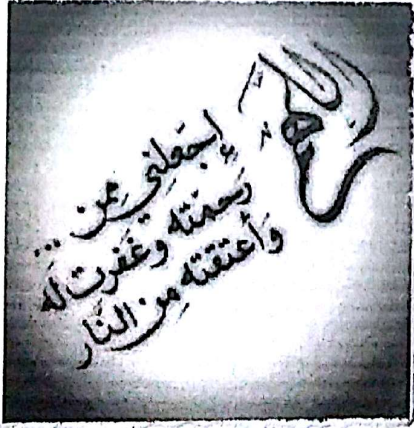 اللهم
إجعلني مِمن ...
رحمته وغفرت له
وأعتقته من النار